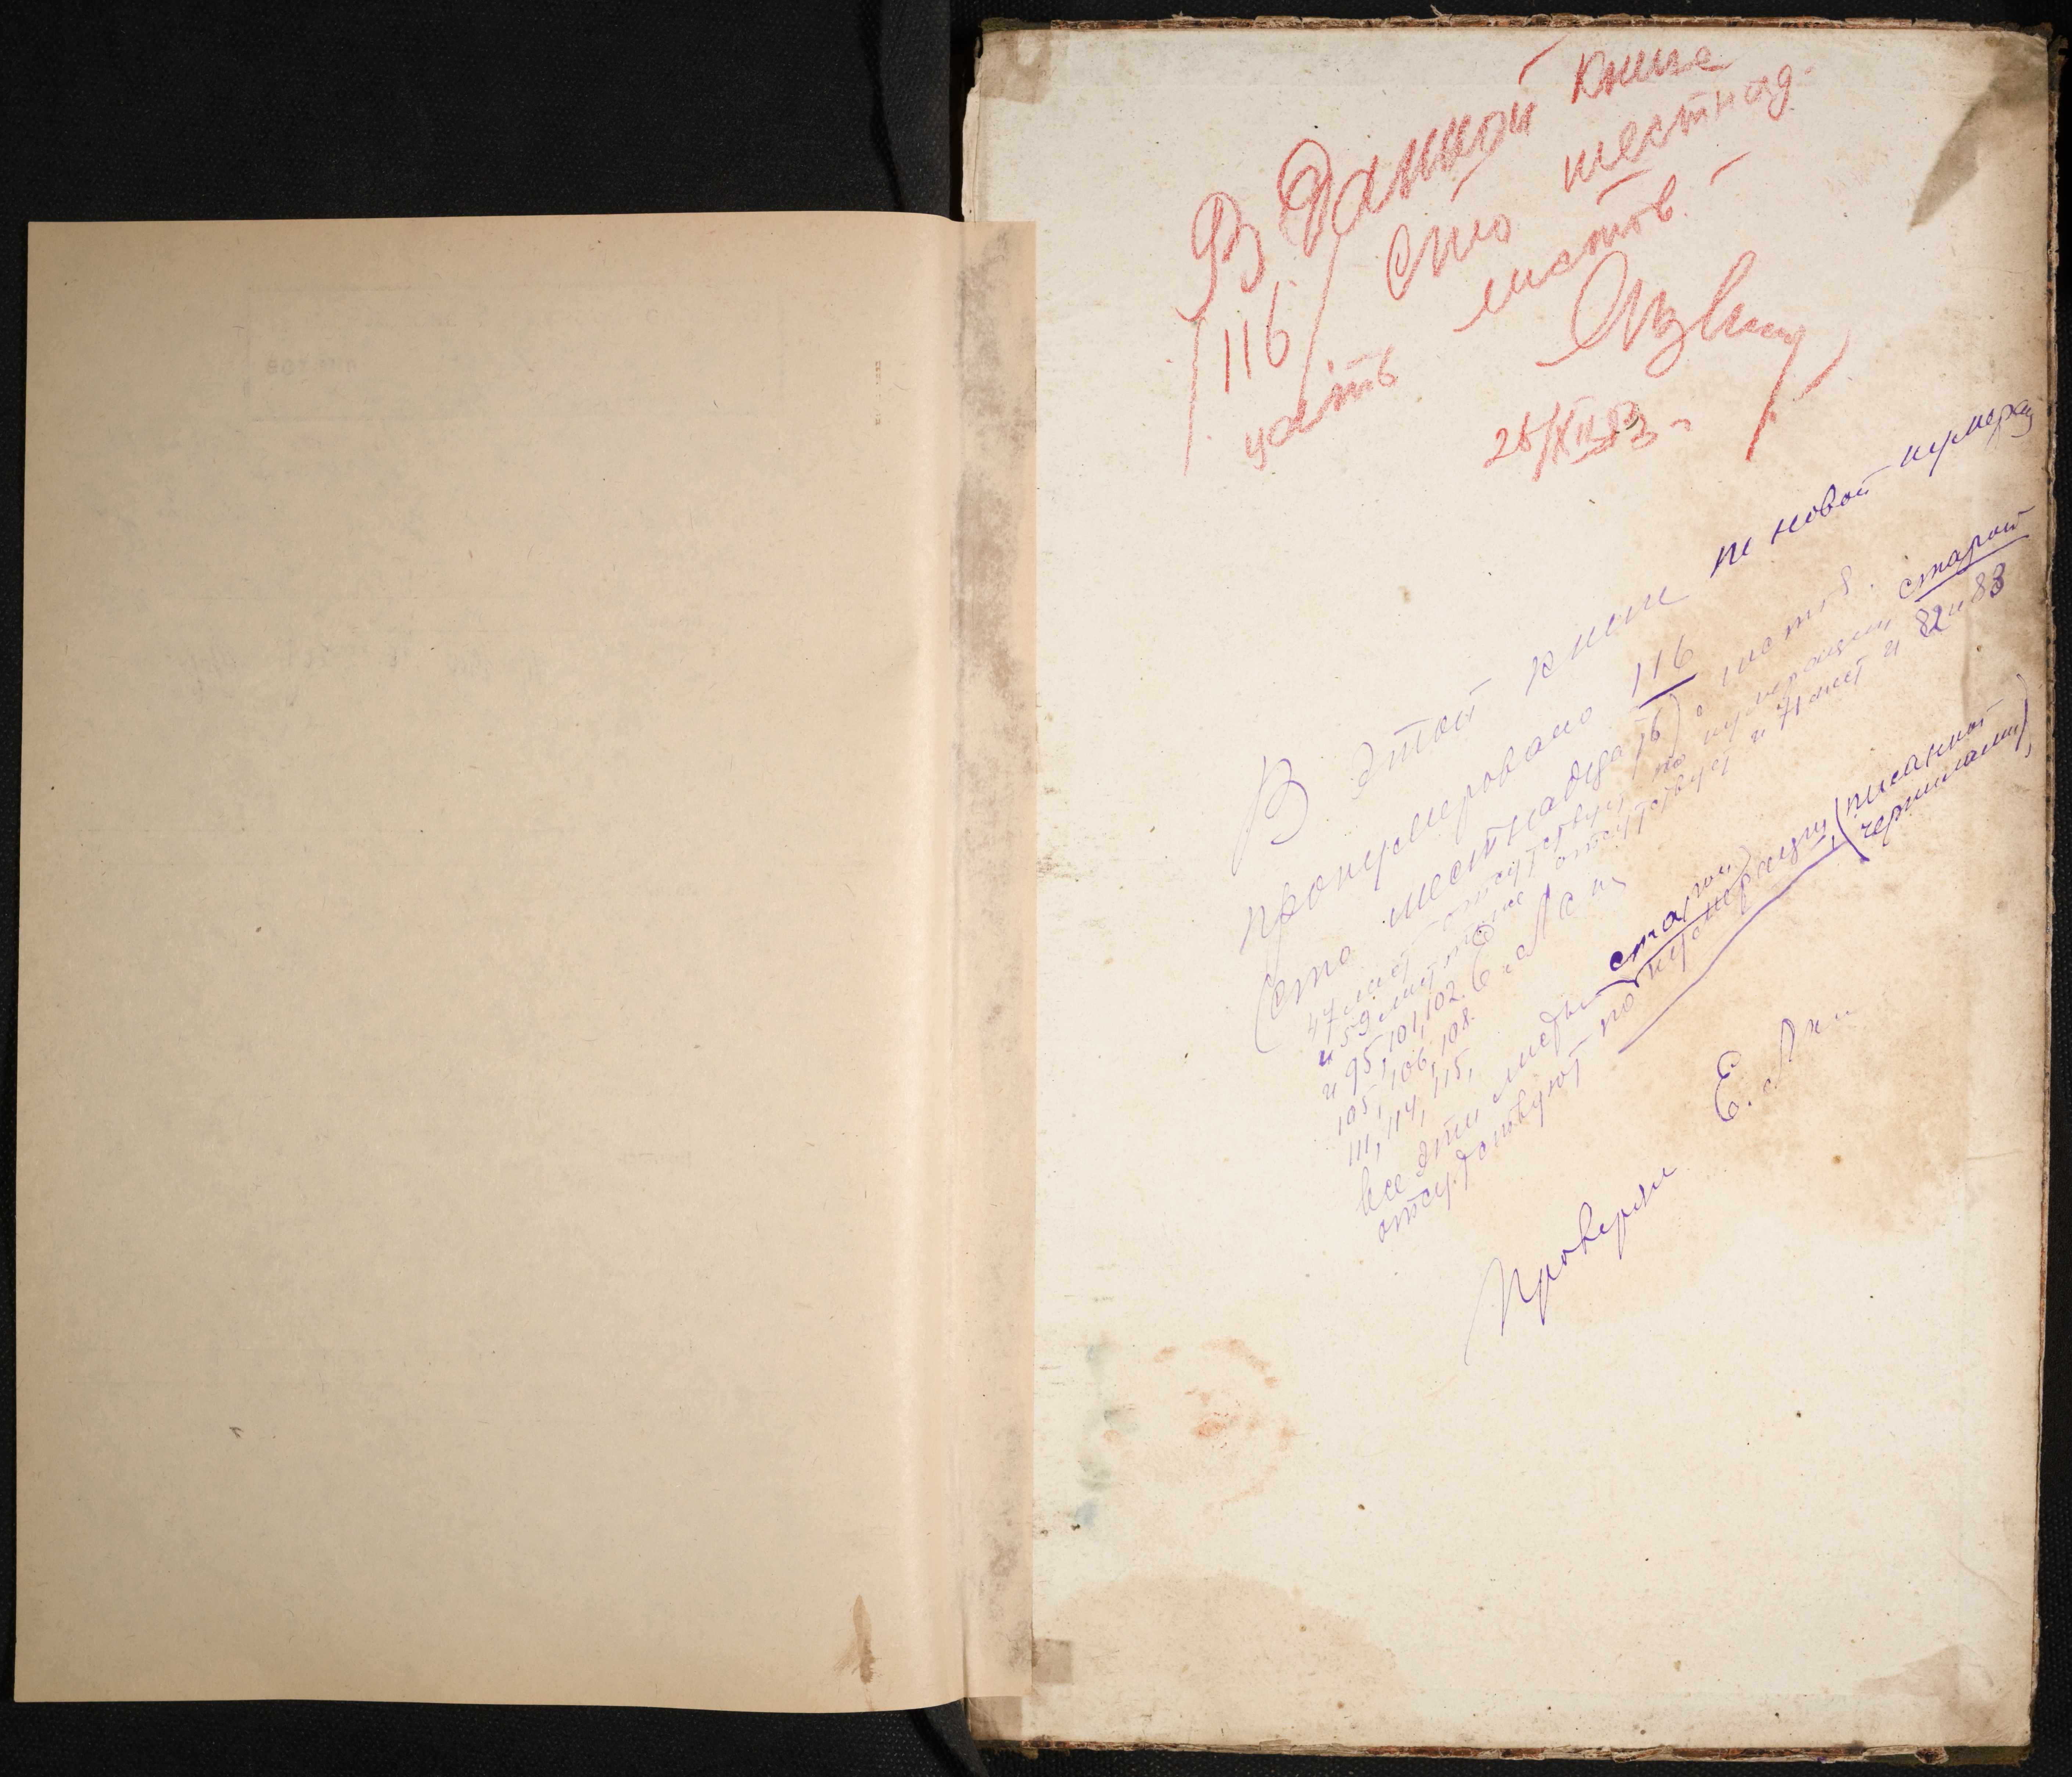 В данной книге
/116/ сто шестнад-
цать листов
28/XII 83 г
В этой книге по новой нумерац
пронумеровано 116
(сто шестнадцать) листов.
47 лист отсутствует по нумерации старой
и 59 лист тоже отсутствует и 71 лист и 82 и 83
и 95, 101, 102.
105, 106, 108.
111, 114, 115,
все эти листы старой
отсутствуют по нумерации, (писанной
чернилами),
Проверен Е.